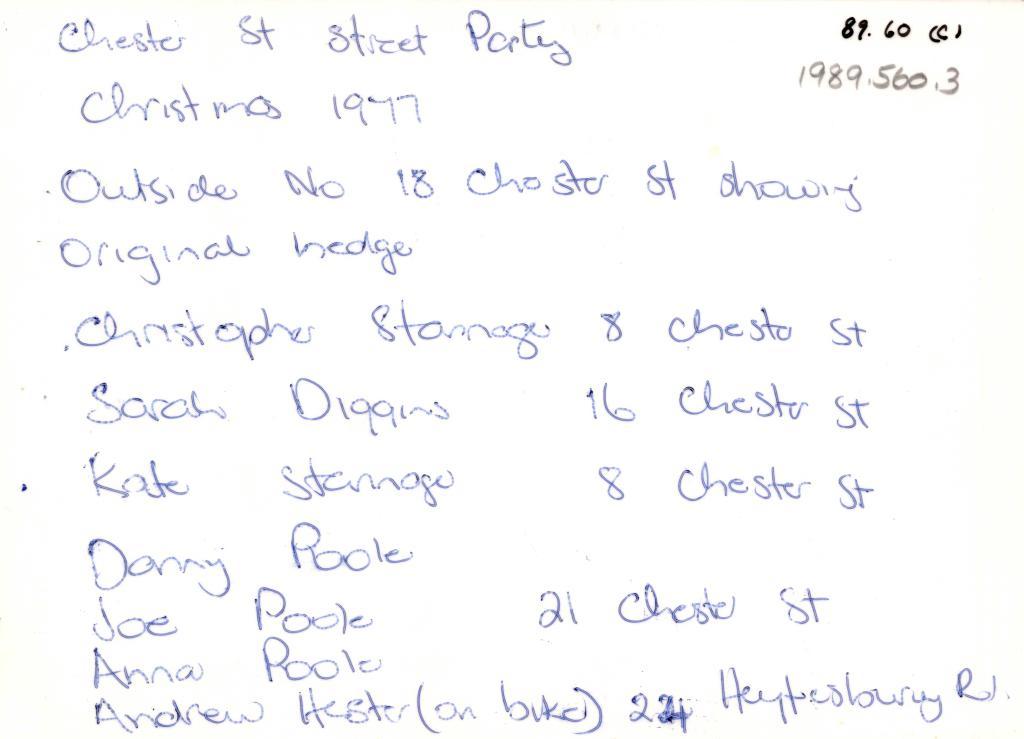 Chester St Street Party
89.60 (C)
1989.560.3
Christmas 1977
Outside No 18 Chester St showing
Original hedge
Christopher Stannage 8 Chester St
Sarah Diggins 16 Chester St
Kate Stannage 8 Chester St
Danny Poole
Joe Poole 21 Chester St
Anna Poole
Andrew Hester (on bike) Heytesbury Rd.